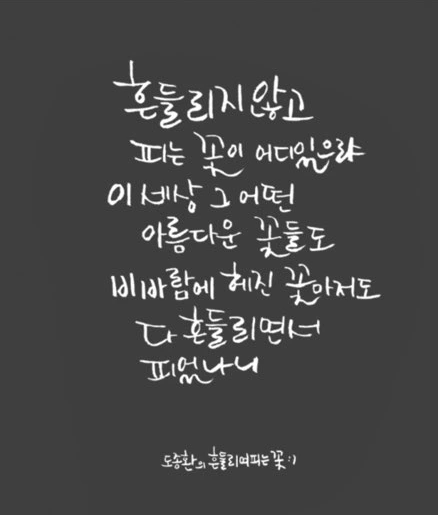 흔들리지 않고
피는 꽃이 어디있으랴
이 세상 그 어떤
아름다운 꽃들도
비바람에 헤진 꽃마저도
다 흔들리면서
피었나니
도종환의 흔들리며피는꽃:)